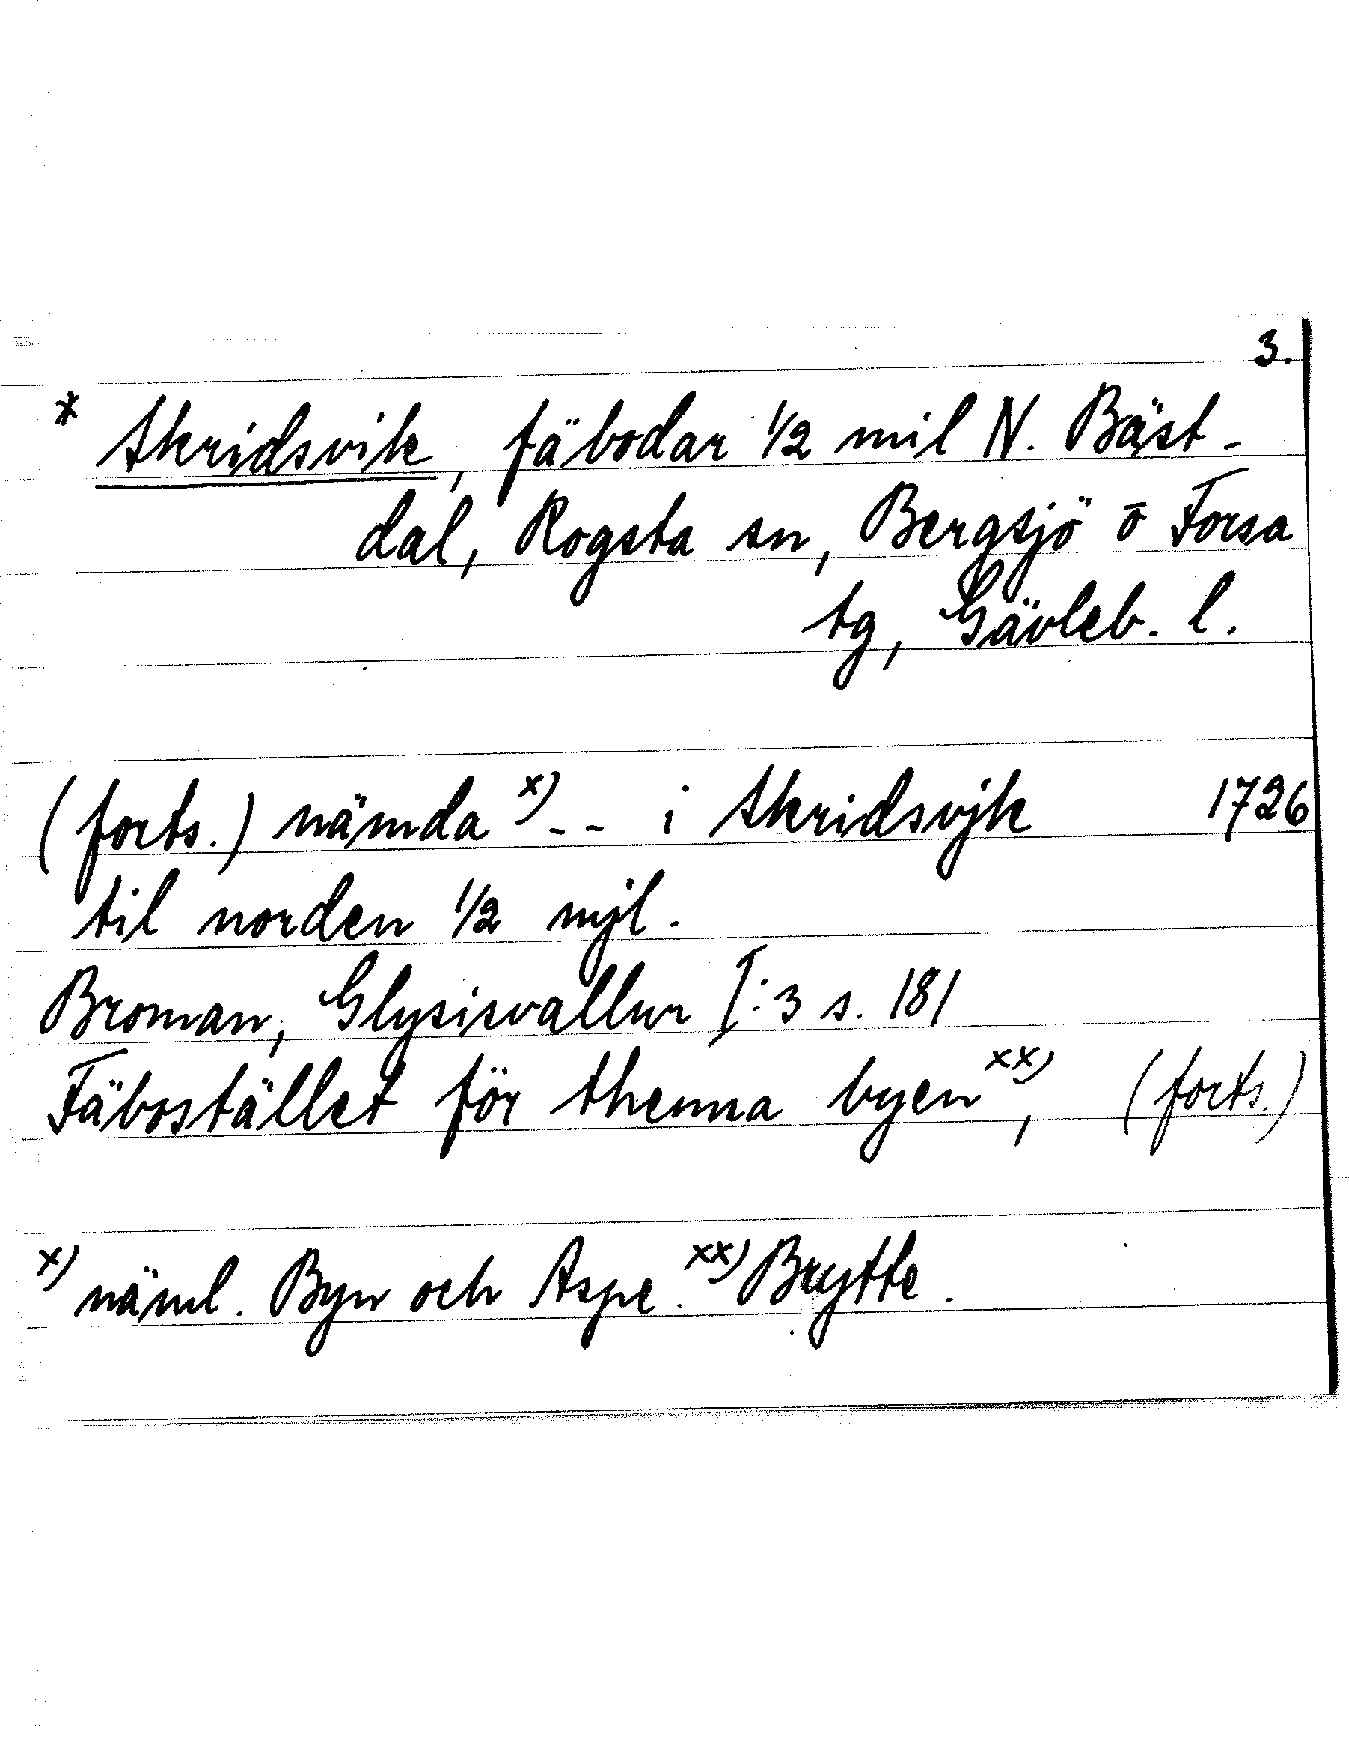 3.
* Skridsvik, fäbodar 1/2 mil N. Bäst-
dal, Rogsta sn, Bergsjö o Forsa
tg, Gävleb. l.
(forts.) nämda x) - - i Skridsvjk 1726
til norden 1/2 mjl.
Broman, Glysisvallur I:3 s. 181
Fäbostället för thenna byen xx), (forts.)
x) näml. Byn och Aspe. xx) Brytte.